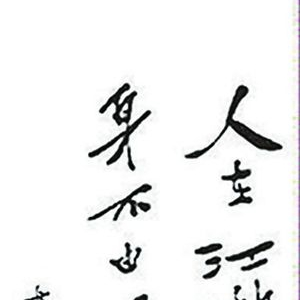 人在江
身不由